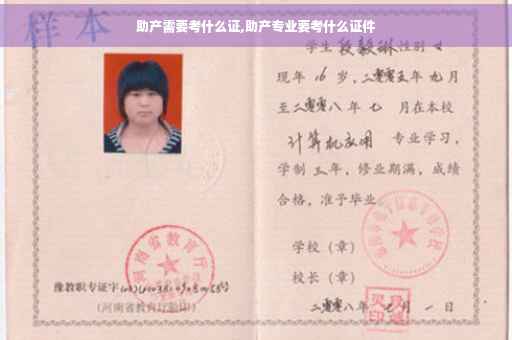 助产需要考什么证,助产专业要考什么证件
样本
学生段毅琳性别女
现年16岁,二零零五年九月
至二零零八年七月在本校
计算机应用 专业学习,
学制三年,修业期满,成绩
合格,准予毕业
学校(章)
校长(章)
二零零八年七月一日
河南省教育厅
豫教职专证字
(河南省教育厅验印)